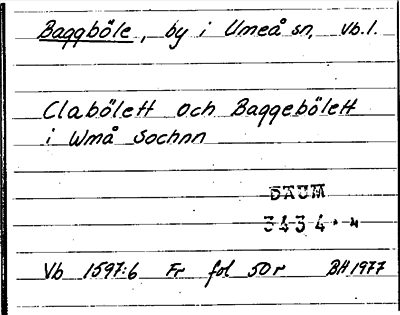 Baggböle, by i Umeå sn, Vb.l.
Clabölett och Baggebölett
i Wmå Sochnn
DAUM
3434
Vb 1597:6 Fr fol 50r BH 1977